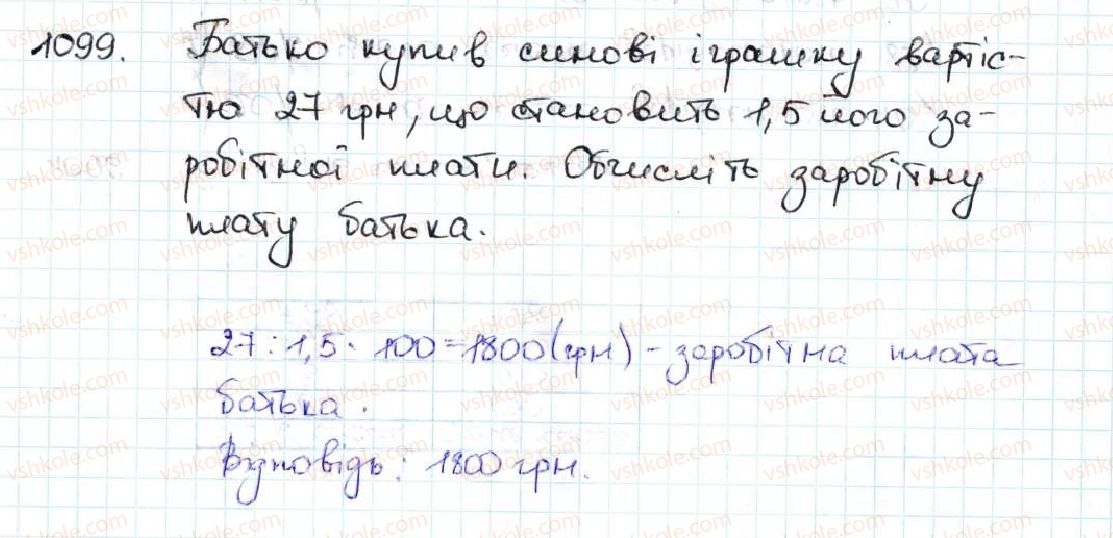 1099. Батько купив синові іграшку вартіс-
тю 27 грн, що становить 1,5 його за-
робітної плати. Обчисліть заробітну
плату батька.
27 : 1,5 · 100 = 1800 (грн) - заробітна плата
батька.
Відповідь: 1800 грн.